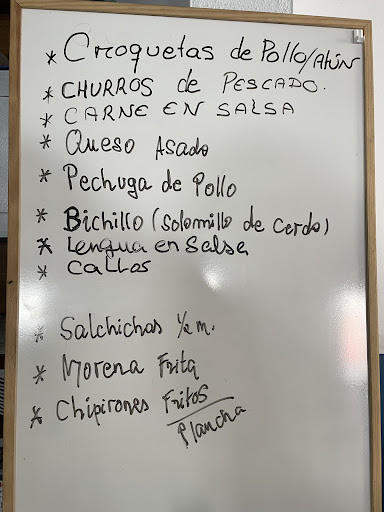 * Croquetas de Pollo/Atún
* CHURROS de PESCADO.
* CARNE EN SALSA
* Queso Asado
* Pechuga de Pollo
* Bichillo (Solomillo de Cerdo)
* Lengua en Salsa
* Callos
* Salchichas ½ m.
* Morena Frita
* Chipirones Fritos
Plancha